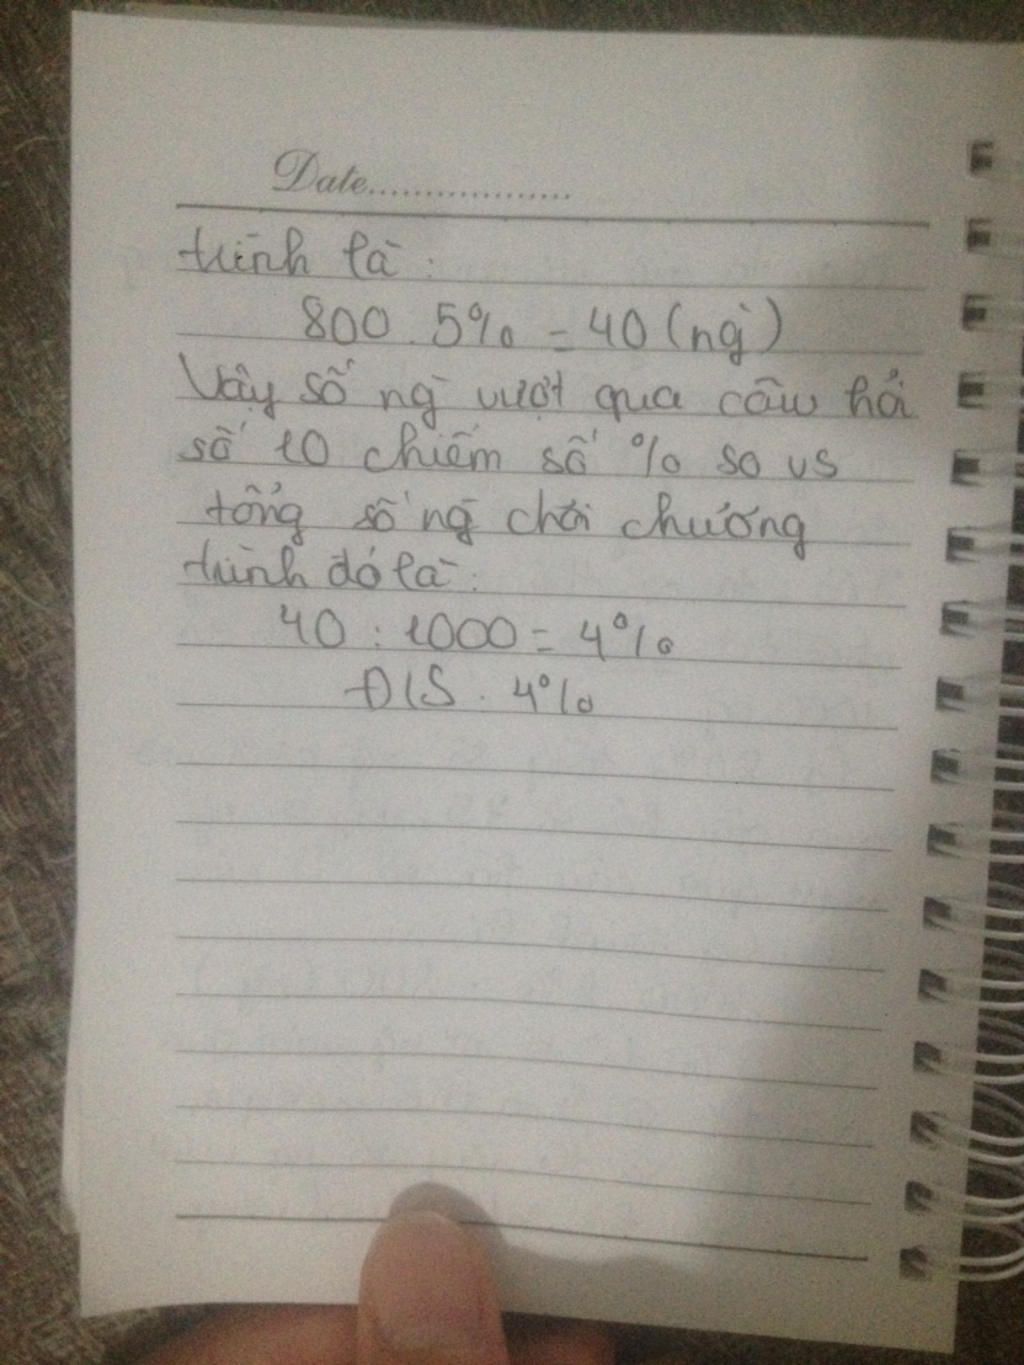 Date..................
trình là:
800 . 5% = 40 (ng`)
Vậy số ng` vượt qua câu hỏi
số 10 chiếm số % so vs
tổng số ng` chơi chương
trình đó là:
40 : 1000 = 4%
Đ/S : 4%